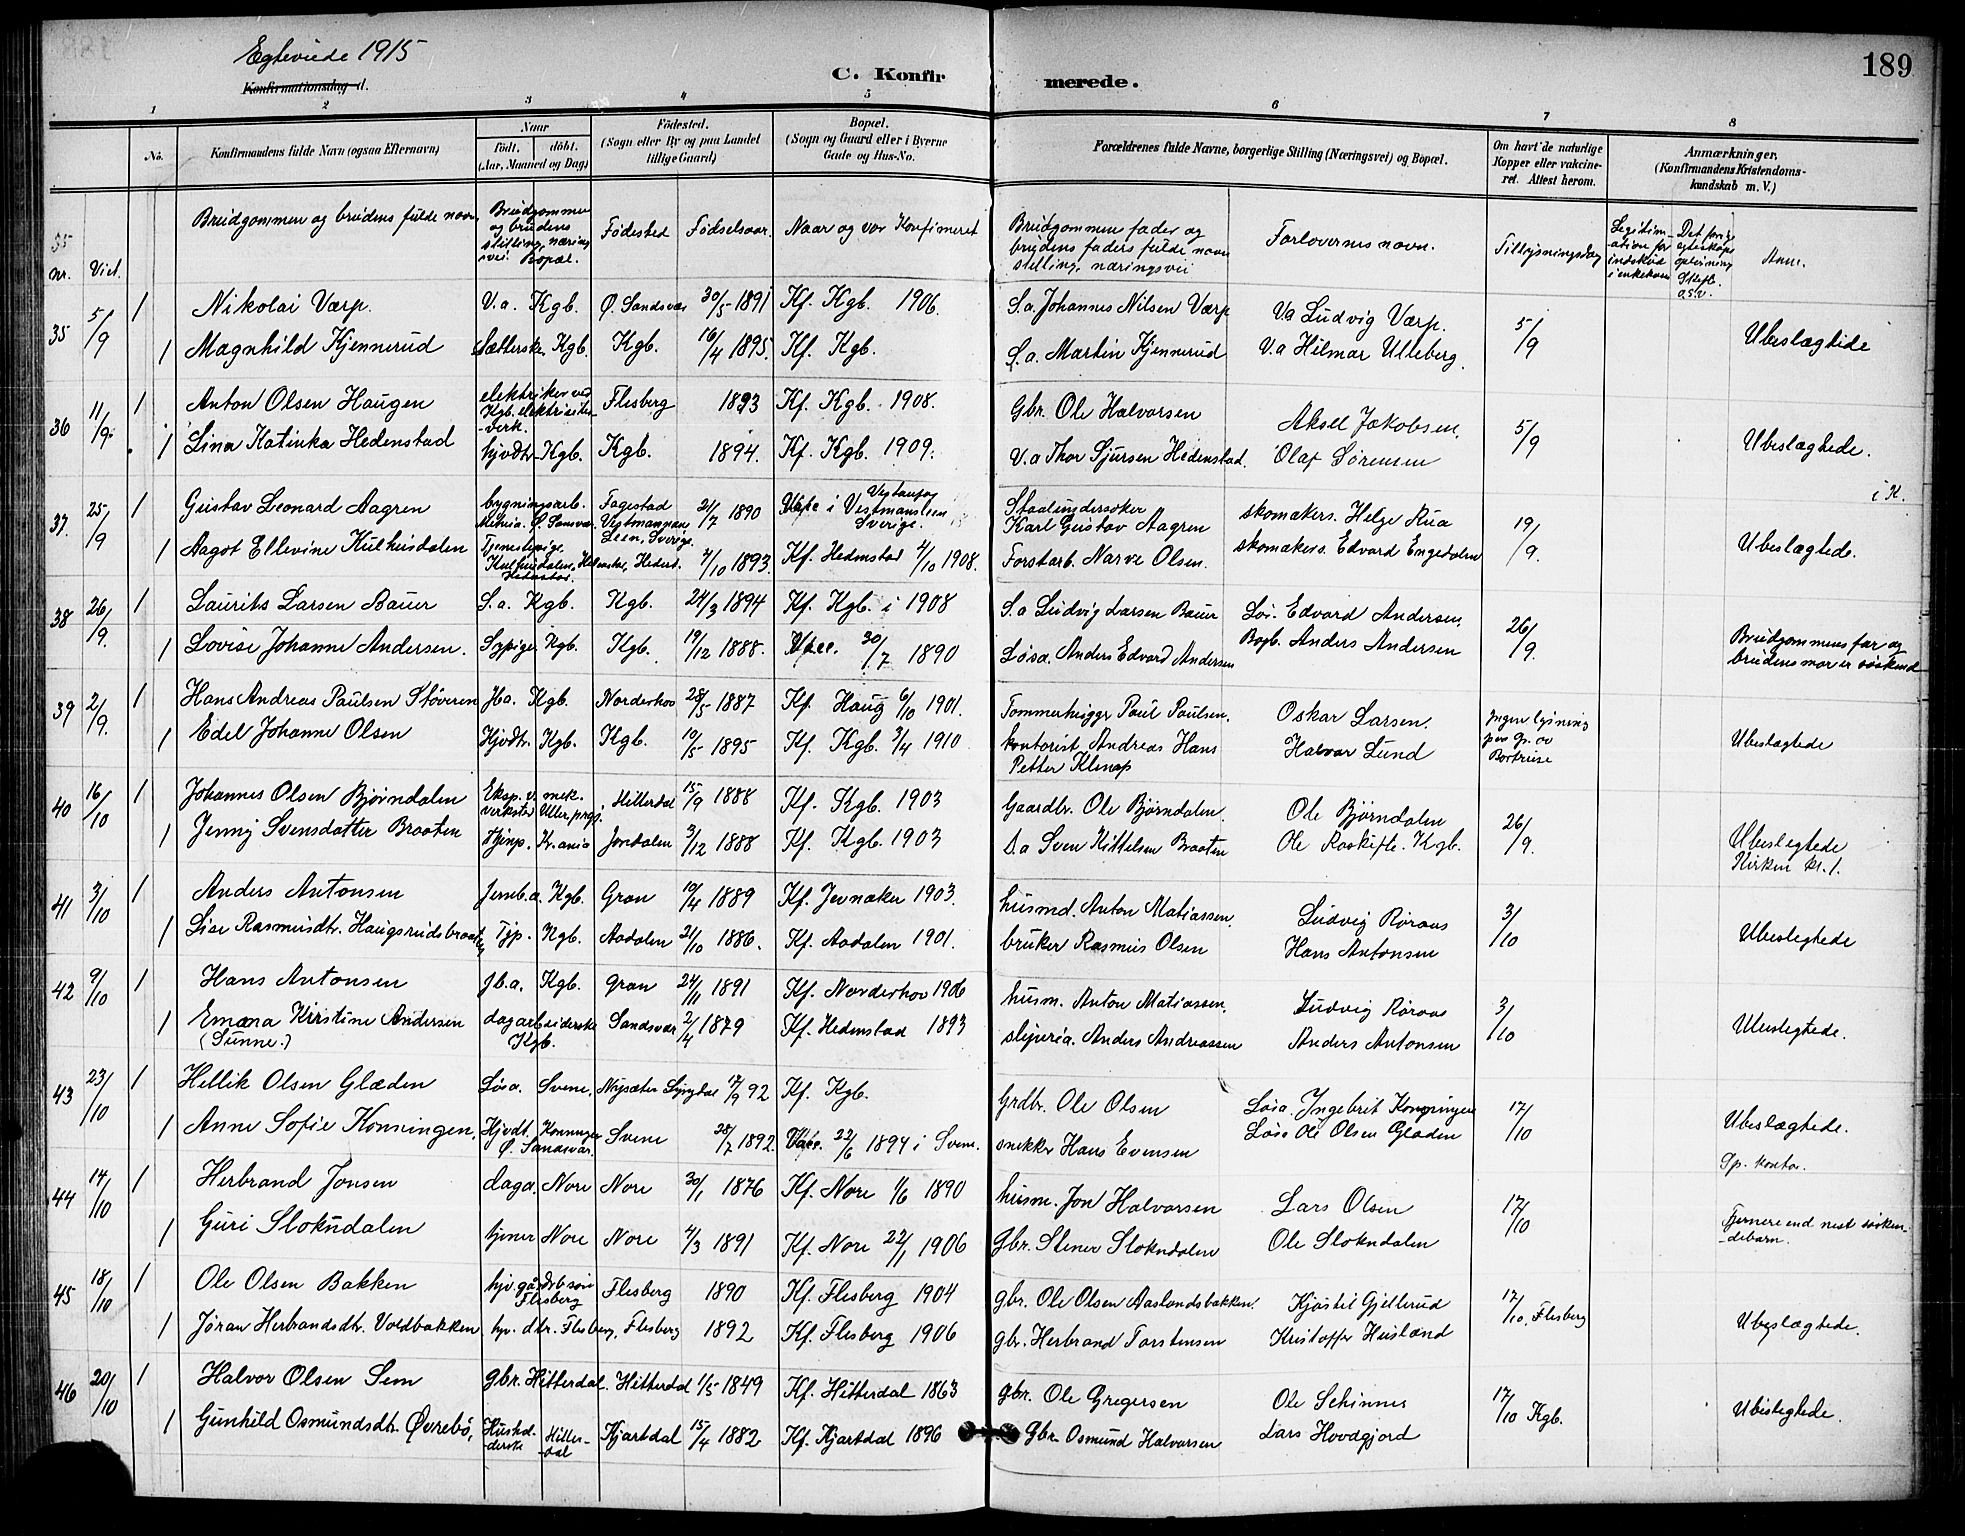 Egteviede 1915
Konfirmationsdag d.
C. Konfirmerede.
189
1 2 3 4 5 6 7 8
No. Konfirmandens fulde Navn (ogsaa Efternavn) Naar født. døbt. (Aar, Maaned og Dag) Fødested. (Sogn eller By og paa Landet tillige Gaard) Bopæl. (Sogn og Gaard eller i Byerne Gade og Hus-No. Forældrenes fulde Navne, borgerlige Stilling (Næringsvei) og Bopæl. Om havt de naturlige Kopper eller vakcineret. Attest herom. Anmærkninger, (Konfirmandens Kristendomskundskab m. V.)
nr. Viet. Brudgommen og brudens fulde navn Brudgommen og brudens stilling, næringsvei Bopæl. Fødested Fødselsaar. Naar og vor Konfirmeret Brudgommens fader og brudens faders fulde navn stilling, næringsvei Forlovernes navn. Tillysningsdag Legitimation for indskud i enkekassen Det forrige egteskaps opløsning Skifte. o.s.v. Anm.
35 5/9 1 Nikolai Værp. V.a. Kgb. Ø. Sandsvær 30/5 1891 Kf. Kgb. 1906. S.a. Johannes Nilsen Værp V.a Ludvig Værp. 5/9 Ubeslægtede
1 Magnhild Kjennerud Kgb. Kgb. 16/4 1895. Kf. Kgb. S.a. Martin Kjennerud V.a Hilmar Ulleberg.
36 11/9. 1 Anton Olsen Haugen elektriker ved Kgb. elektrisitetsverk. Flesberg 1893 Kf. Kgb. 1908. Gbr. Ole Halvorsen Aksel Jakobsen. 5/9 Ubeslægtede.
1 Lina Katinka Hedenstad hjvdtr. Kgb. Kgb. 1894. Kf. Kgb. 1909. V.a Thor Sjursen Hedenstad. Olaf Sørensen
37. 25/9 1 Gustav Leonard Aagren bygningsarb. Ø. Samsvær. Fagestad Vestmannan Leen, Sverige. 21/7 1890 Vacc i Vestmanleen Sverige. Karl Gustav Aagren skomakers. Helge Rua 19/9. i K. Ubeslægtede.
1 Aagot Ellevine Kulhusdalen Tjenestepige Kulhusdalen, Hedenstad 7/10 1893. Kf. Hedenstad 4/10 1908. Forstarb. Narve Olsen. skomakers. Edvard Engedalen
38 26/9. 1 Laurits Larsen Bauer S.a. Kgb. Kgb. 24/3 1894 Kf. Kgb. i 1908 S.a Ludvig Larsen Bauer Edvard Andersen. 26/9. Brudgommens far og brudens mor er søskend
1 Lovise Johanne Andersen. Sypige. Kgb. Kgb. 19/12 1888. Vacc. 30/7 1890 Løsa. Anders Edvard Andersen Anders Andersen
39 2/9. 1 Hans Andreas Paulsen Støveren Ha. Kgb. Norderhov 28/5 1887 Kf. Haug 6/10 1901. Tømmerhugger Paul Paulsen. Oskar Larsen. Ingen lysning paa gr. av Bortreise Ubeslægtede
1 Edel Johanne Olsen Hjvdtr. Kgb. Kgb. 19/5 1895 Kf. Kgb. 3/4 1910. kontorist Andreas Hans Petter Klemp Halvor Lund
40 16/10 1 Johannes Olsen Bjørndalen Eksp. v. mek. verksted Hitterdal 15/9 1888 Kf. Kgb. 1903 Gaardbr. Ole Bjørndalen. Ole Bjørndalen 26/9. Ubeslegtede Kirken kl. 1.
1 Jenny Svensdatter Braaten Kr.ania Jondalen 3/12 1888 Kf. Kgb. 1903 D.a Sven Kittelsen Braaten Ole Raskifte. Kgb.
41 3/10 1 Anders Antonsen Jernb.a. Kgb. Gran 19/4 1889 Kf. Jevnaker 1903. husmd. Anton Matiassen. Ludvig Røraas 3/10 Ubeslegtede
1 Lise Rasmusdtr. Haugsrudsbraaten Tjp. Kgb. Aadalen 21/10 1886. Kf. Aadalen 1901. bruker Rasmus Olsen Hans Antonsen
42 9/10 1 Hans Antonsen Jb.a. Kgb. Gran 24/11 1891 Kf. Norderhov 1906 husm. Anton Matiassen. Ludvig Røraas 3/10 Ubeslegtede.
1 Emma Kristine Andersen (Sunne.) dagarbeiderske Kgb. Sandsvær 2/4 1879 Kf. Hedenstad 1893 sliperia. Anders Andreassen Anders Antonsen
43 23/10 1 Hellik Olsen Glæden Løsa. Svene. Nysæter Lyngdal 17/9 92 Kf. Kgb. Grdbr. Ole Olsen Løsa. Ingebret Konningen 17/10 Ubeslægtede.
1 Anne Sofie Konningen. Hjvdt. Konningen Ø. Sandsvær. Svene 28/7 1892. Vacc. 22/6 1894 i Svene. snekker Hans Evensen Løsa Ole Olsen Glæden
Sp. kontor.
44 14/10 1 Herbrand Jonsen daga. Nore Nore 30/1 1876 Kf. Nore 1/6 1890 husm. Jon Halvorsen Lars Olsen 17/10 Fjernere end nest søskendebarn.
1 Guri Slokndalen tjener Nore Nore 4/3 1891 Kf. Nore 22/1 1906 Gbr. Stener Slokndalen Ole Slokndalen
45 18/10 1 Ole Olsen Bakken hjv. gårdb søn Flesberg Flesberg 1890 Kf. Flesberg 1904 gbr. Ole Olsen Aaslandsbakken. Kjøstil Gjellerud 17/10. Flesberg Ubeslægtede.
1 Jøran Herbrandsdtr. Voldbakken hjv. dtr. Flesberg, Flesberg 1892 Kf. Flesberg 1906 gbr. Herbrand Torstensen Kristoffer Husland
46 20/10 1 Halvor Olsen Sem gbr. Hitterdal. Hitterdal 1/5 1849 Kf. Hitterdal 1863 gbr. Ole Gregersen Ole Schinnes 17/10 Kgb. Ubeslegtede.
1 Gunhild Osmundsdtr. Øvrebø, Hushdderske Hitterdal Kjartdal 15/4 1882 Kf. Kjartdal 1896 Gbr. Osmund Halvorsen Lars Hovdgjord